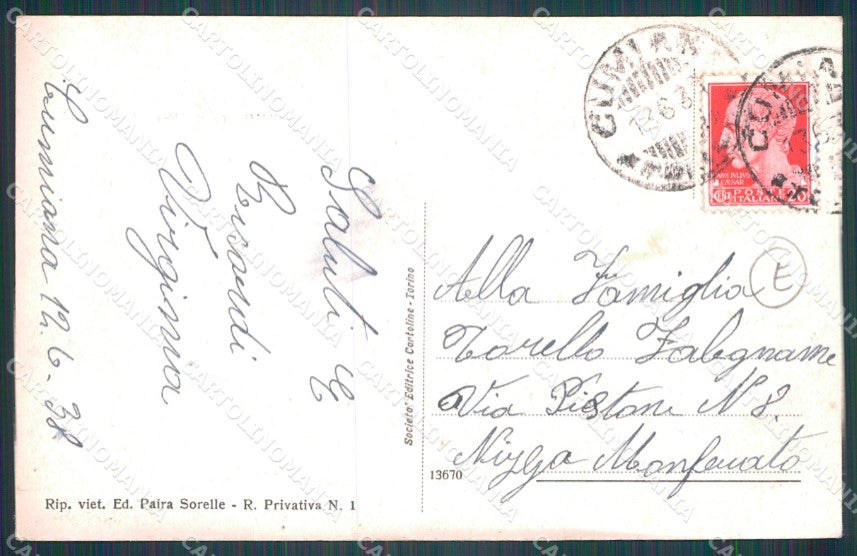 Cumiana 12-6-38
Saluti E
Ricordi
Virginia
Società Editrice Cartoline - Torino
CUMIANA
13.6.3
CUMIANA
POSTE
ITALIANE
Alla Famiglia
Torello Falegname
Via Pistone N 8.
Nizza Monferrato
E
13670
Rip. viet. Ed. Paira Sorelle - R. Privativa N. 1
CARTOLINOMANIA